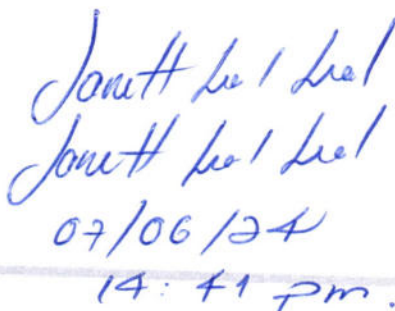 Janett Leal Leal
Janett Leal Leal
07/06/24
14:41 pm.